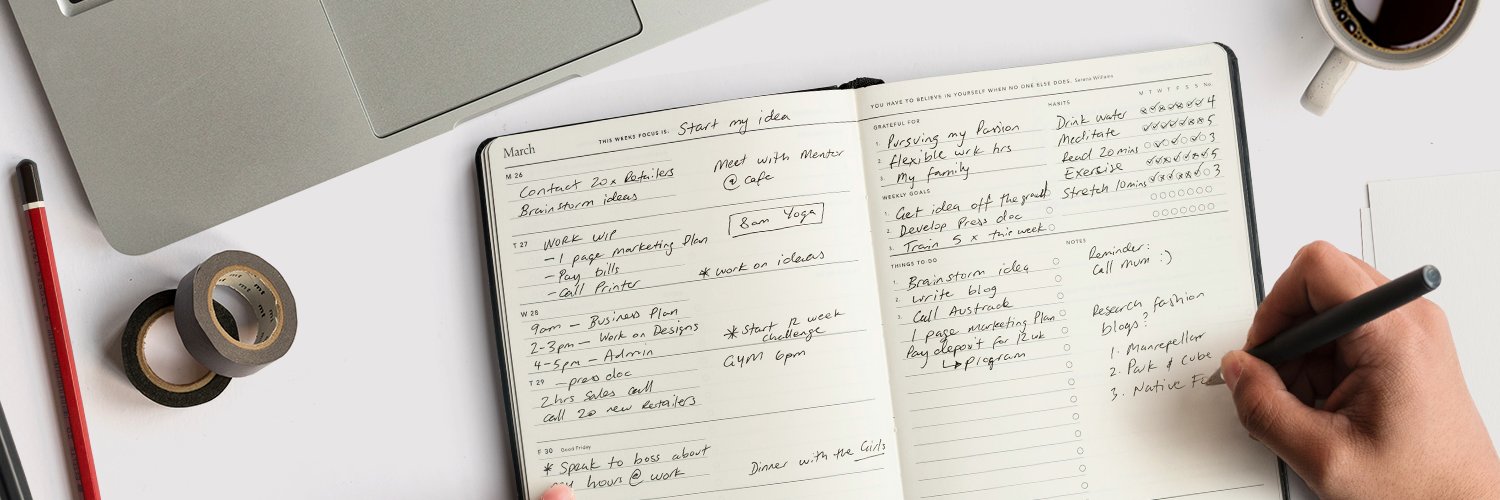 March
THIS WEEKS FOCUS IS: Start my idea
M 26
Contact 20x Retailers
Brainstorm ideas
Meet with Mentor
@ cafe
T 27
WORK WIP
- 1 page marketing Plan
- Pay bills
- Call Printer
8am Yoga
* work on ideas
W 28
9am - Business Plan
2-3pm - Work on Designs
4-5pm - Admin
* Start 12 week
challenge
GYM 6pm
T 29
- press doc
2hrs Sales call
Call 20 new Retailers
F 30 Good Friday
* Speak to boss about
my hours @ work
Dinner with the Girls
YOU HAVE TO BELIEVE IN YOURSELF WHEN NO ONE ELSE DOES. Serena Williams
GRATEFUL FOR
1. Pursuing my Passion
2. flexible wrk hrs
3. My family
WEEKLY GOALS
1. Get idea off the ground
2. Develop Press doc
3. Train 5 x this week
THINGS TO DO
1. Brainstorm idea
2. write blog
3. Call Austrade
1 page marketing Plan
Pay deposit for 12 wk
program
HABITS
M T W T F S S No.
Drink water 4
Meditate 5
Read 20 mins 3
Exersise 5
Stretch 10mins 3
NOTES
Reminder:
Call Mum :)
Research fashion
blogs?
1. Manrepeller
2. Park & Cube
3. Native
mt